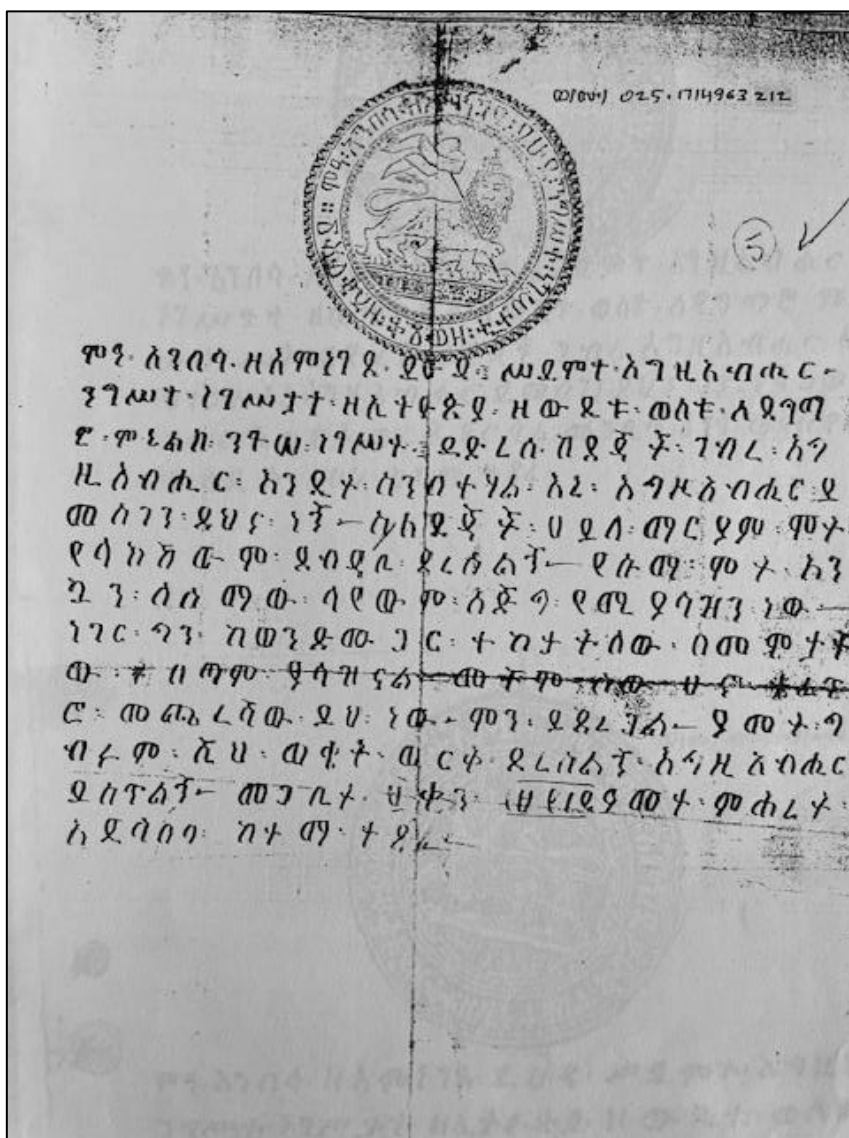 ወ/ሙ/ 025.1714963 212
5
ሞዓ አንበሳ ዘእምነገደ ይሁዳ፡ ሥዩም እግዚአብሔር
ንግሥተ ነገሥታት ዘኢትዮጵያ
ምኒልክ ንጉሠ ነገሥት ይድረስ ከደጃች፡ ገብረ፡ እግ
ዚአብሔር፡ እንደት ሰንብተሃል እኔ፡ እግዚአብሔር ይ
መስገን ደህና ነኝ ስለ ደጃች፡ ኀይለ ማርያም ሞት
የላክኸውም ደብዳቤ ደረሰልኝ የሱማ ሞት እን
ኳን፡ ለሰማው ላየውም፡ እጅግ የሚያሳዝን ነው
ነገር፡ ግን፡ ከወንድሙ ጋር፡ ተከታትለው በመሞታቸ
ው በጣም ያሳዝናል መቸም ነው
መጨረሻው ይህ፡ ነው ምን ይደረጋል ያመት ግ
ብሩም ሺህ ወቄት ወርቅ ደረሰልኝ እግዚአብሔር
ይስጥልኝ መጋቢት ቀን ዓመት ምሕረት
አዲስአበባ ከተማ ተጻፈ